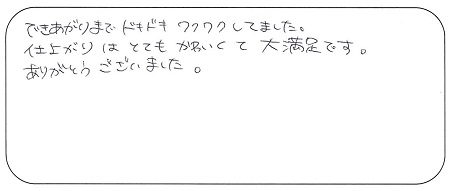 できあがりまで ドキドキ ワクワクしてました。
仕上がりは とても かわいくて 大満足です。
ありがとうございました。